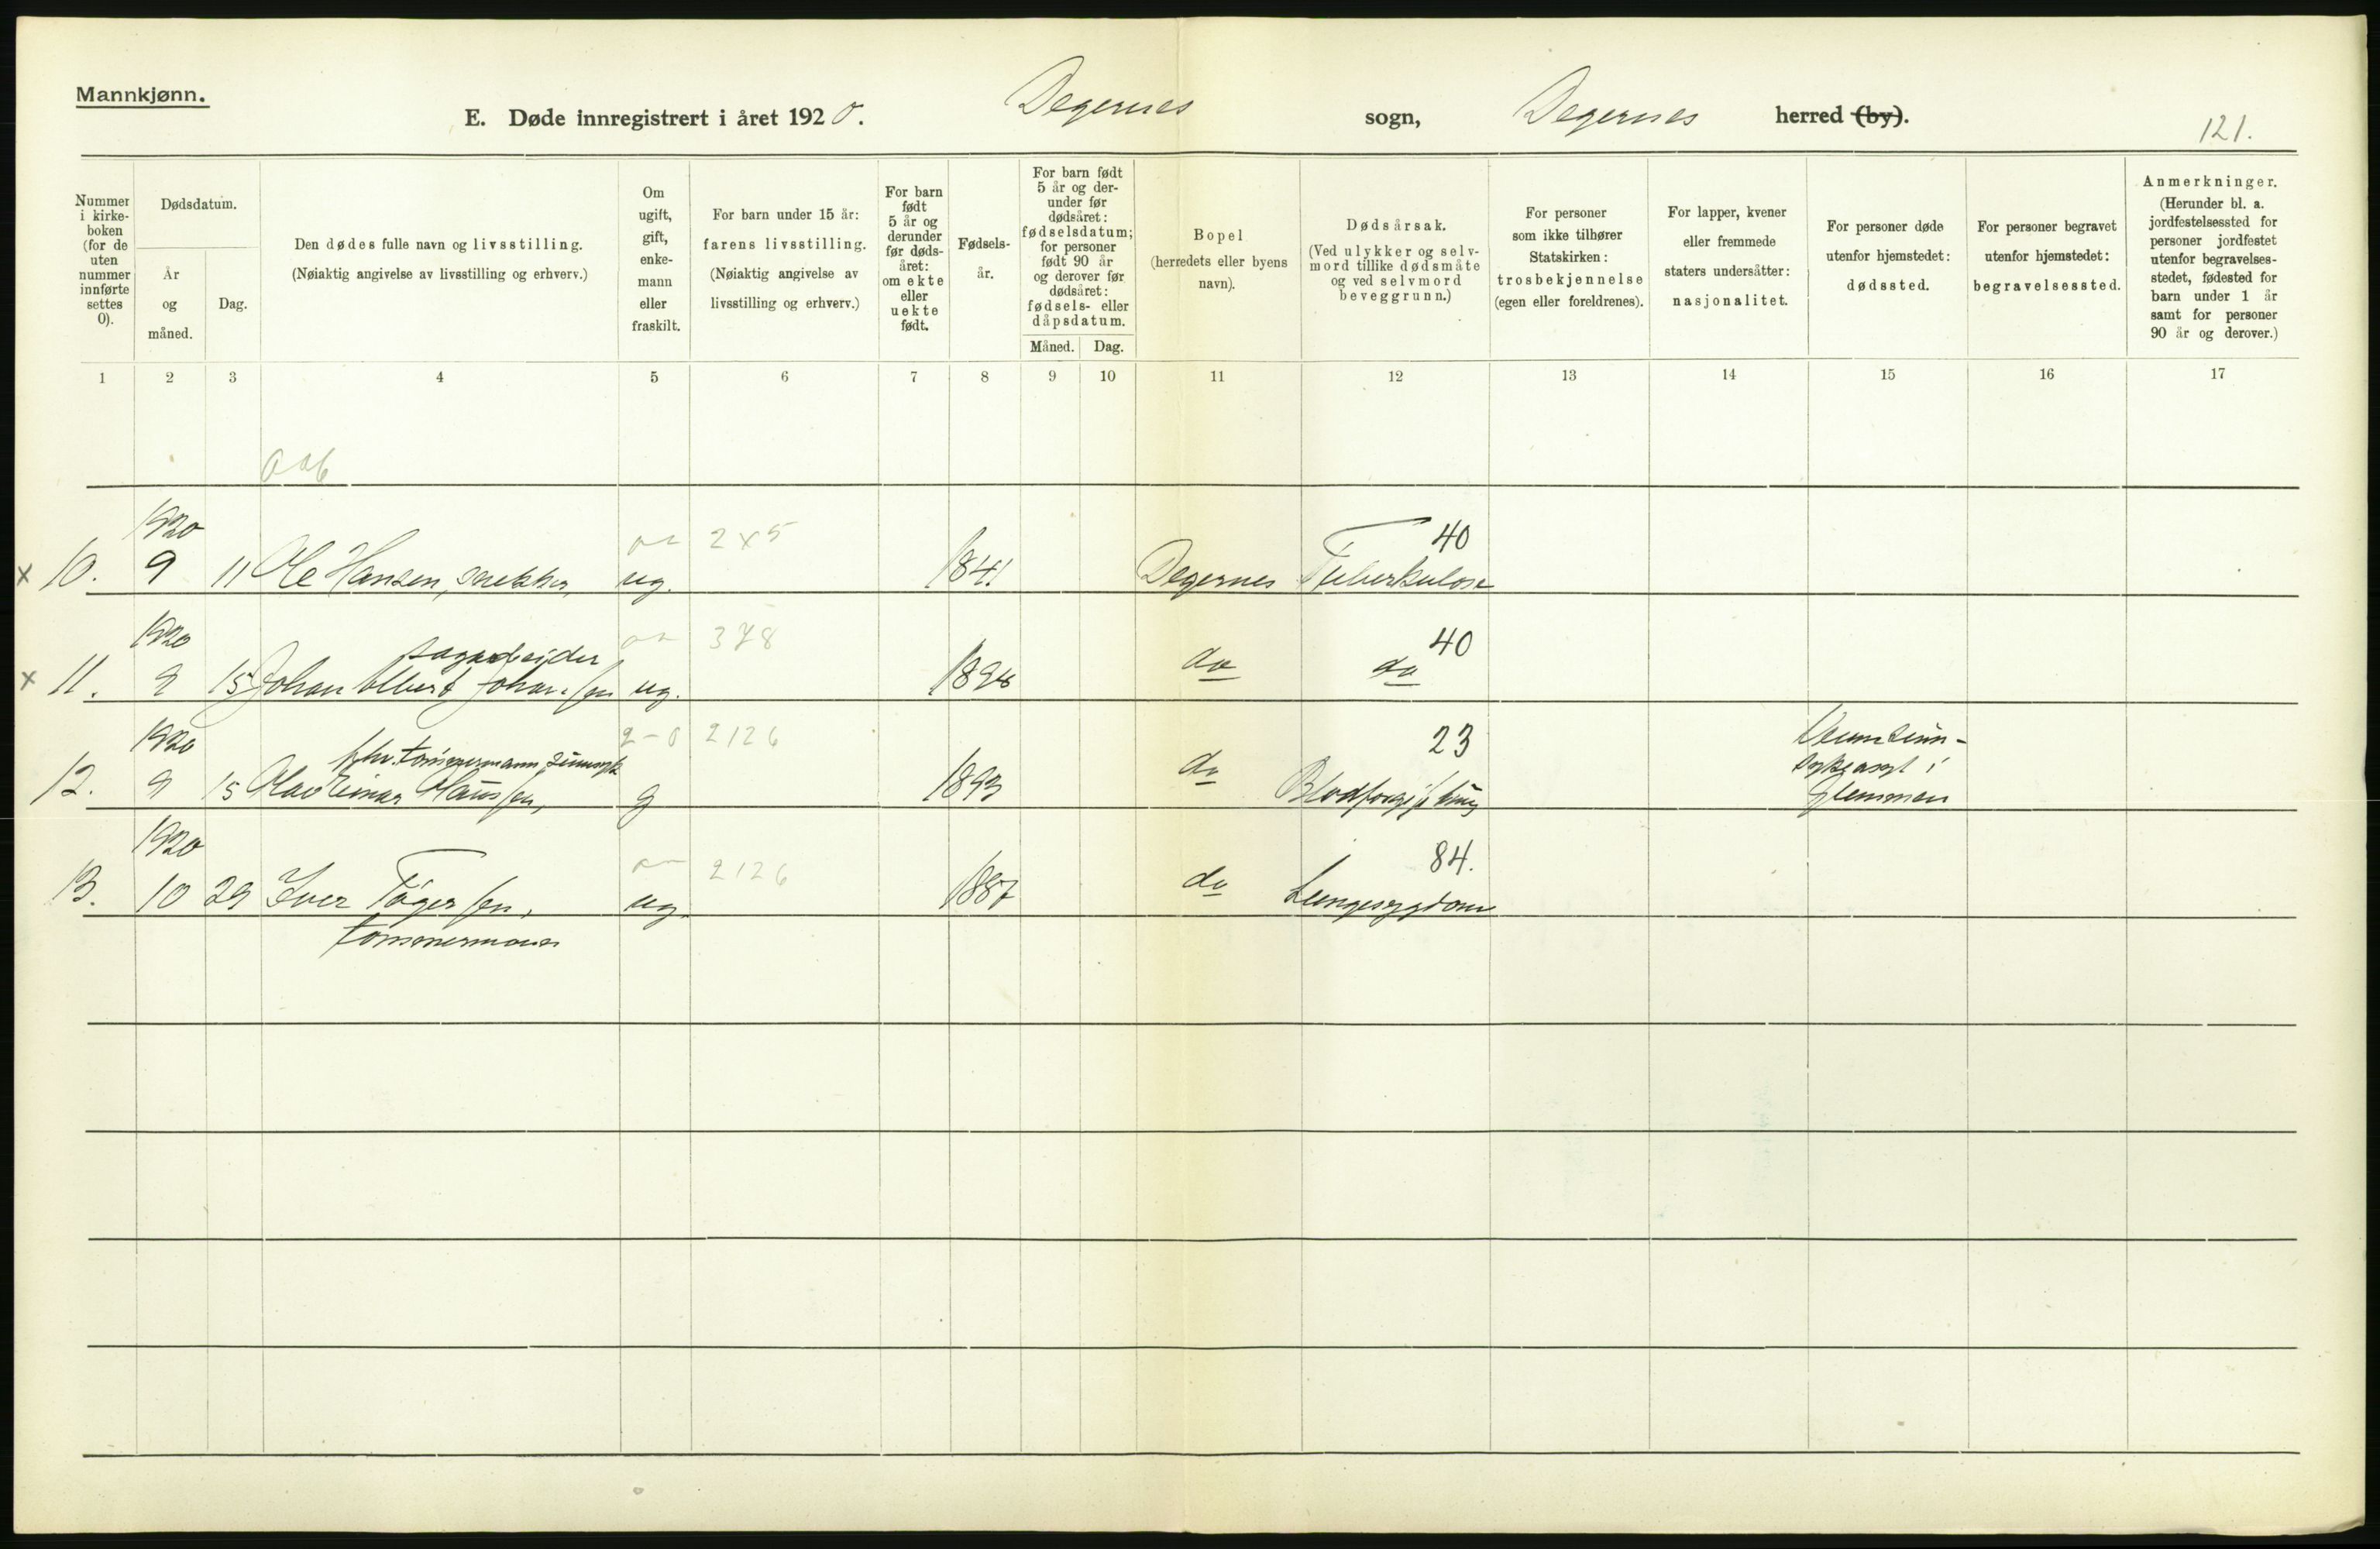 Mannkjønn.
E. Døde innregistrert i året 1920. Degernes sogn, Degernes herred (by).
121.
Nummer i kirkeboken (for de uten nummer innførte settes 0).
Dødsdatum.
År og måned.
Dag.
Den dødes fulle navn og livsstilling.
(Nøiaktig angivelse av livsstilling og erhverv.)
Om ugift, gift, enkemann eller fraskilt.
For barn under 15 år:
farens livsstilling.
(Nøiaktig angivelse av
livsstilling og erhverv.)
For barn født 5 år og derunder før dødsåret: om ekte eller uekte født.
Fødselsår.
For barn født 5 år og derunder før dødsåret: fødselsdatum; for personer født 90 år og derover før dødsåret: fødsels- eller dåpsdatum.
Måned. Dag.
Bopel
(herredets eller byens
navn).
Dødsårsak.
(Ved ulykker og selvmord tillike dødsmåte og ved selvmord beveggrunn.)
For personer
som ikke tilhører
Statskirken:
trosbekjennelse
(egen eller foreldrenes).
For lapper, kvener
eller fremmede
staters undersåtter:
nasjonalitet.
For personer døde
utenfor hjemstedet:
dødssted.
For personer begravet
utenfor hjemstedet:
begravelsessted.
Anmerkninger.
(Herunder bl. a. jordfestelsessted for personer jordfestet utenfor begravelsesstedet, fødested for barn under 1 år samt for personer 90 år og derover.)
1 2 3 4 5 6 7 8 9 10 11 12 13 14 15 16 17
1920 2x5 40
x 10. 9 11 Ole Hansen, snekker, ug. 1841 Degernes Tuberkulose
1920 sagarbeider 378 40
x 11. 9 15 Johan Albert Johansen ug. do do
1920 fhv. tømmermann, sinnsyk 2-0 2126 23
12. 9 15 Olav Einar Hansen, g 1893 do Blodforgiftning
sykeasyl i
Glemmen
1920 2126 84.
13. 10 29 Iver Tøgersen, ug. 1887 do Lungesygdom
tømmermann